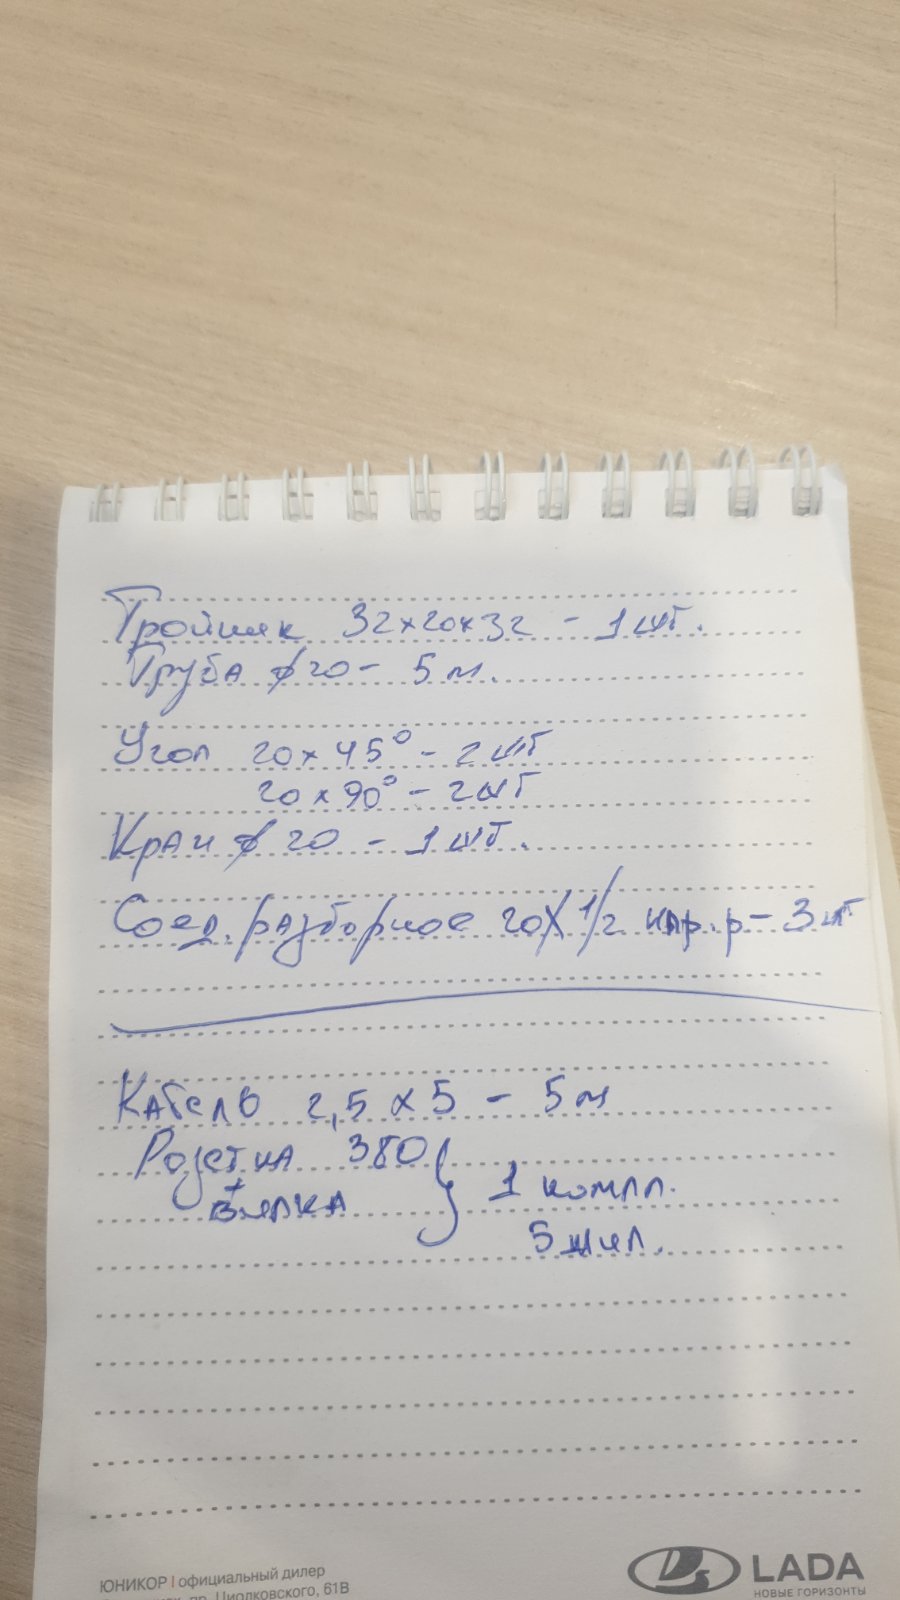 Тройник 32х20х32 - 1 шт.
Труба ф20 - 5 м.
Угол 20 х 45° - 2 шт
20 х 90° - 2 шт
Кран ф 20 - 1 шт.
Соед. разборное 20Х1/2 нар.р - 3 шт
Кабель 2,5 х 5 - 5 м
Розетка 380 }
+
Вилка
1 компл.
5 жил.
ЮНИКОР | официальный дилер
пр. Циолковского, 61В
LADA
НОВЫЕ ГОРИЗОНТЫ